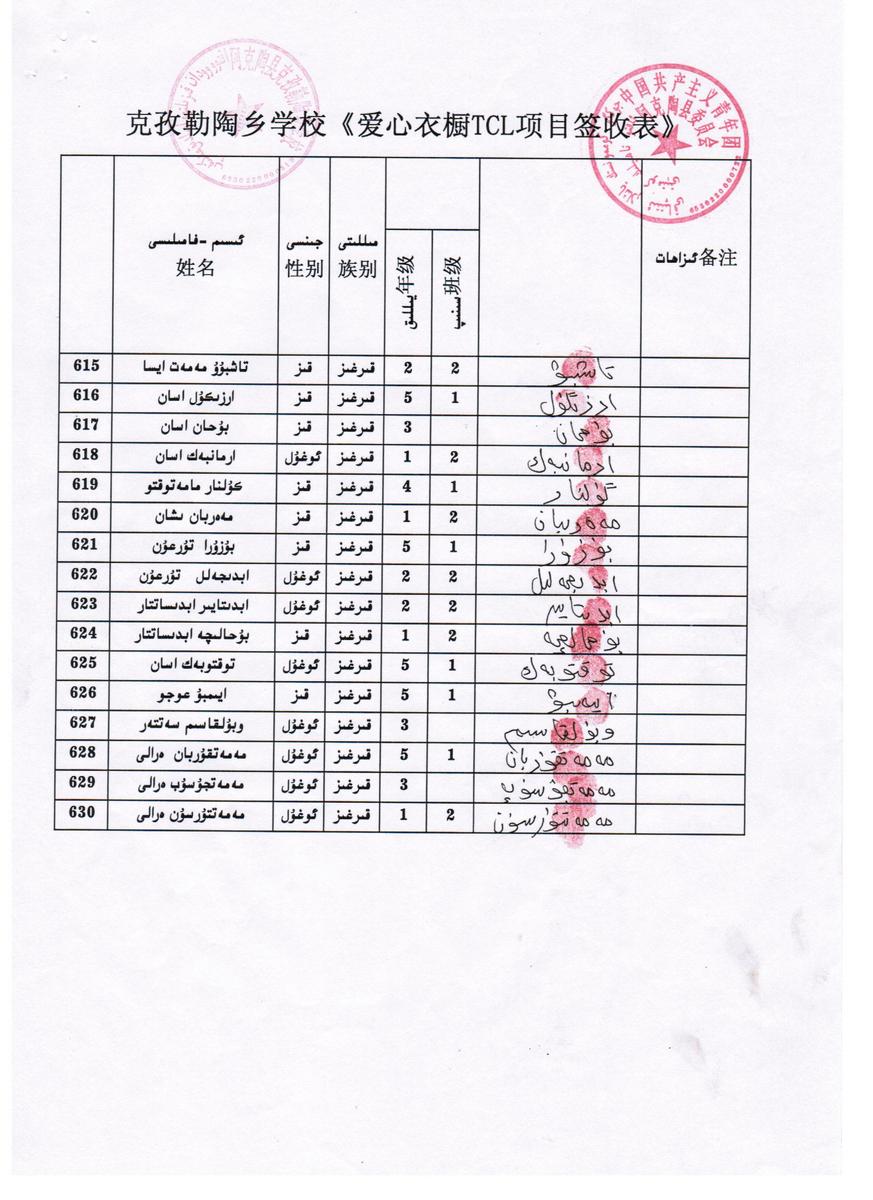 克孜勒陶乡学校《爱心衣橱TCL项目签收表》
中国共产主义青年团
克陶县委员会
6530220000722
阿克陶县克孜勒陶
ئىسىم -فامىلىسى جىنسى مىللىتى
姓名 性别 族别 يىللىق年级 سىنىپ班级 ئىزاھات备注
615 تاشبۇۇ مەمەت ايسا قىز قىرغىز 2 2 تاشبۇۋ
616 ارزىكۇل اسان قىز قىرغىز 5 1 ارزىگۇل
617 بۇحان اسان قىز قىرغىز 3 بۇحان
618 ارمانبەك اسان ئوغۇل قىرغىز 1 2 ارمانبەك
619 كۇلنار مامەتوقتو قىز قىرغىز 4 1 گۇلنار
620 مەەربان ىشان قىز قىرغىز 1 2
621 بۇزۇرا تۇرعۇن قىز قىرغىز 5 1 بۇزۇرا
622 ابدىجەلل تۇرعۇن ئوغۇل قىرغىز 2 2 ابدىجەلىل
623 ابدىتايىر ابدىساتتار ئوغۇل قىرغىز 2 2
624 بۇحالىچە ابدىساتتار قىز قىرغىز 1 2 بۇحالىچە
625 توقتوبەك اسان ئوغۇل قىرغىز 5 1 توقتوبەك
626 ايىمبۇ عوجو قىز قىرغىز 5 1
627 وبۇلقاسىم سەتتەر ئوغۇل قىرغىز 3 وبۇلقاسىم
628 مەمەتقۇربان ەرالى ئوغۇل قىرغىز 5 1 مەمەتقۇربان
629 مەمەتجۇسۇپ ەرالى ئوغۇل قىرغىز 3 مەمەتجۇسۇپ
630 مەمەتتۇرسۇن ەرالى ئوغۇل قىرغىز 1 2 مەمەتتۇرسۇن